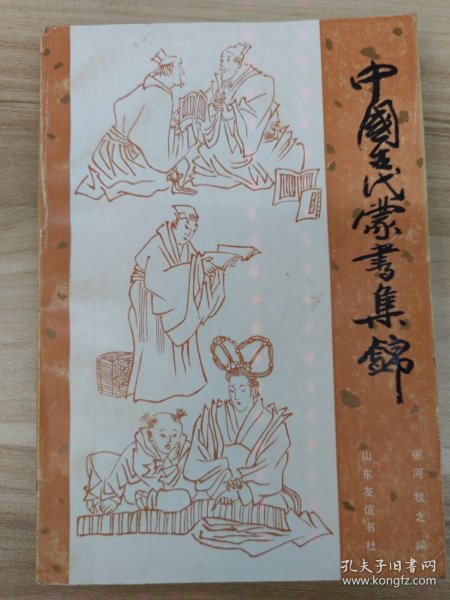 中國古代蒙書集錦
张河 牧之 编
山东友谊书社
孔夫子旧书网
www.kongfz.com